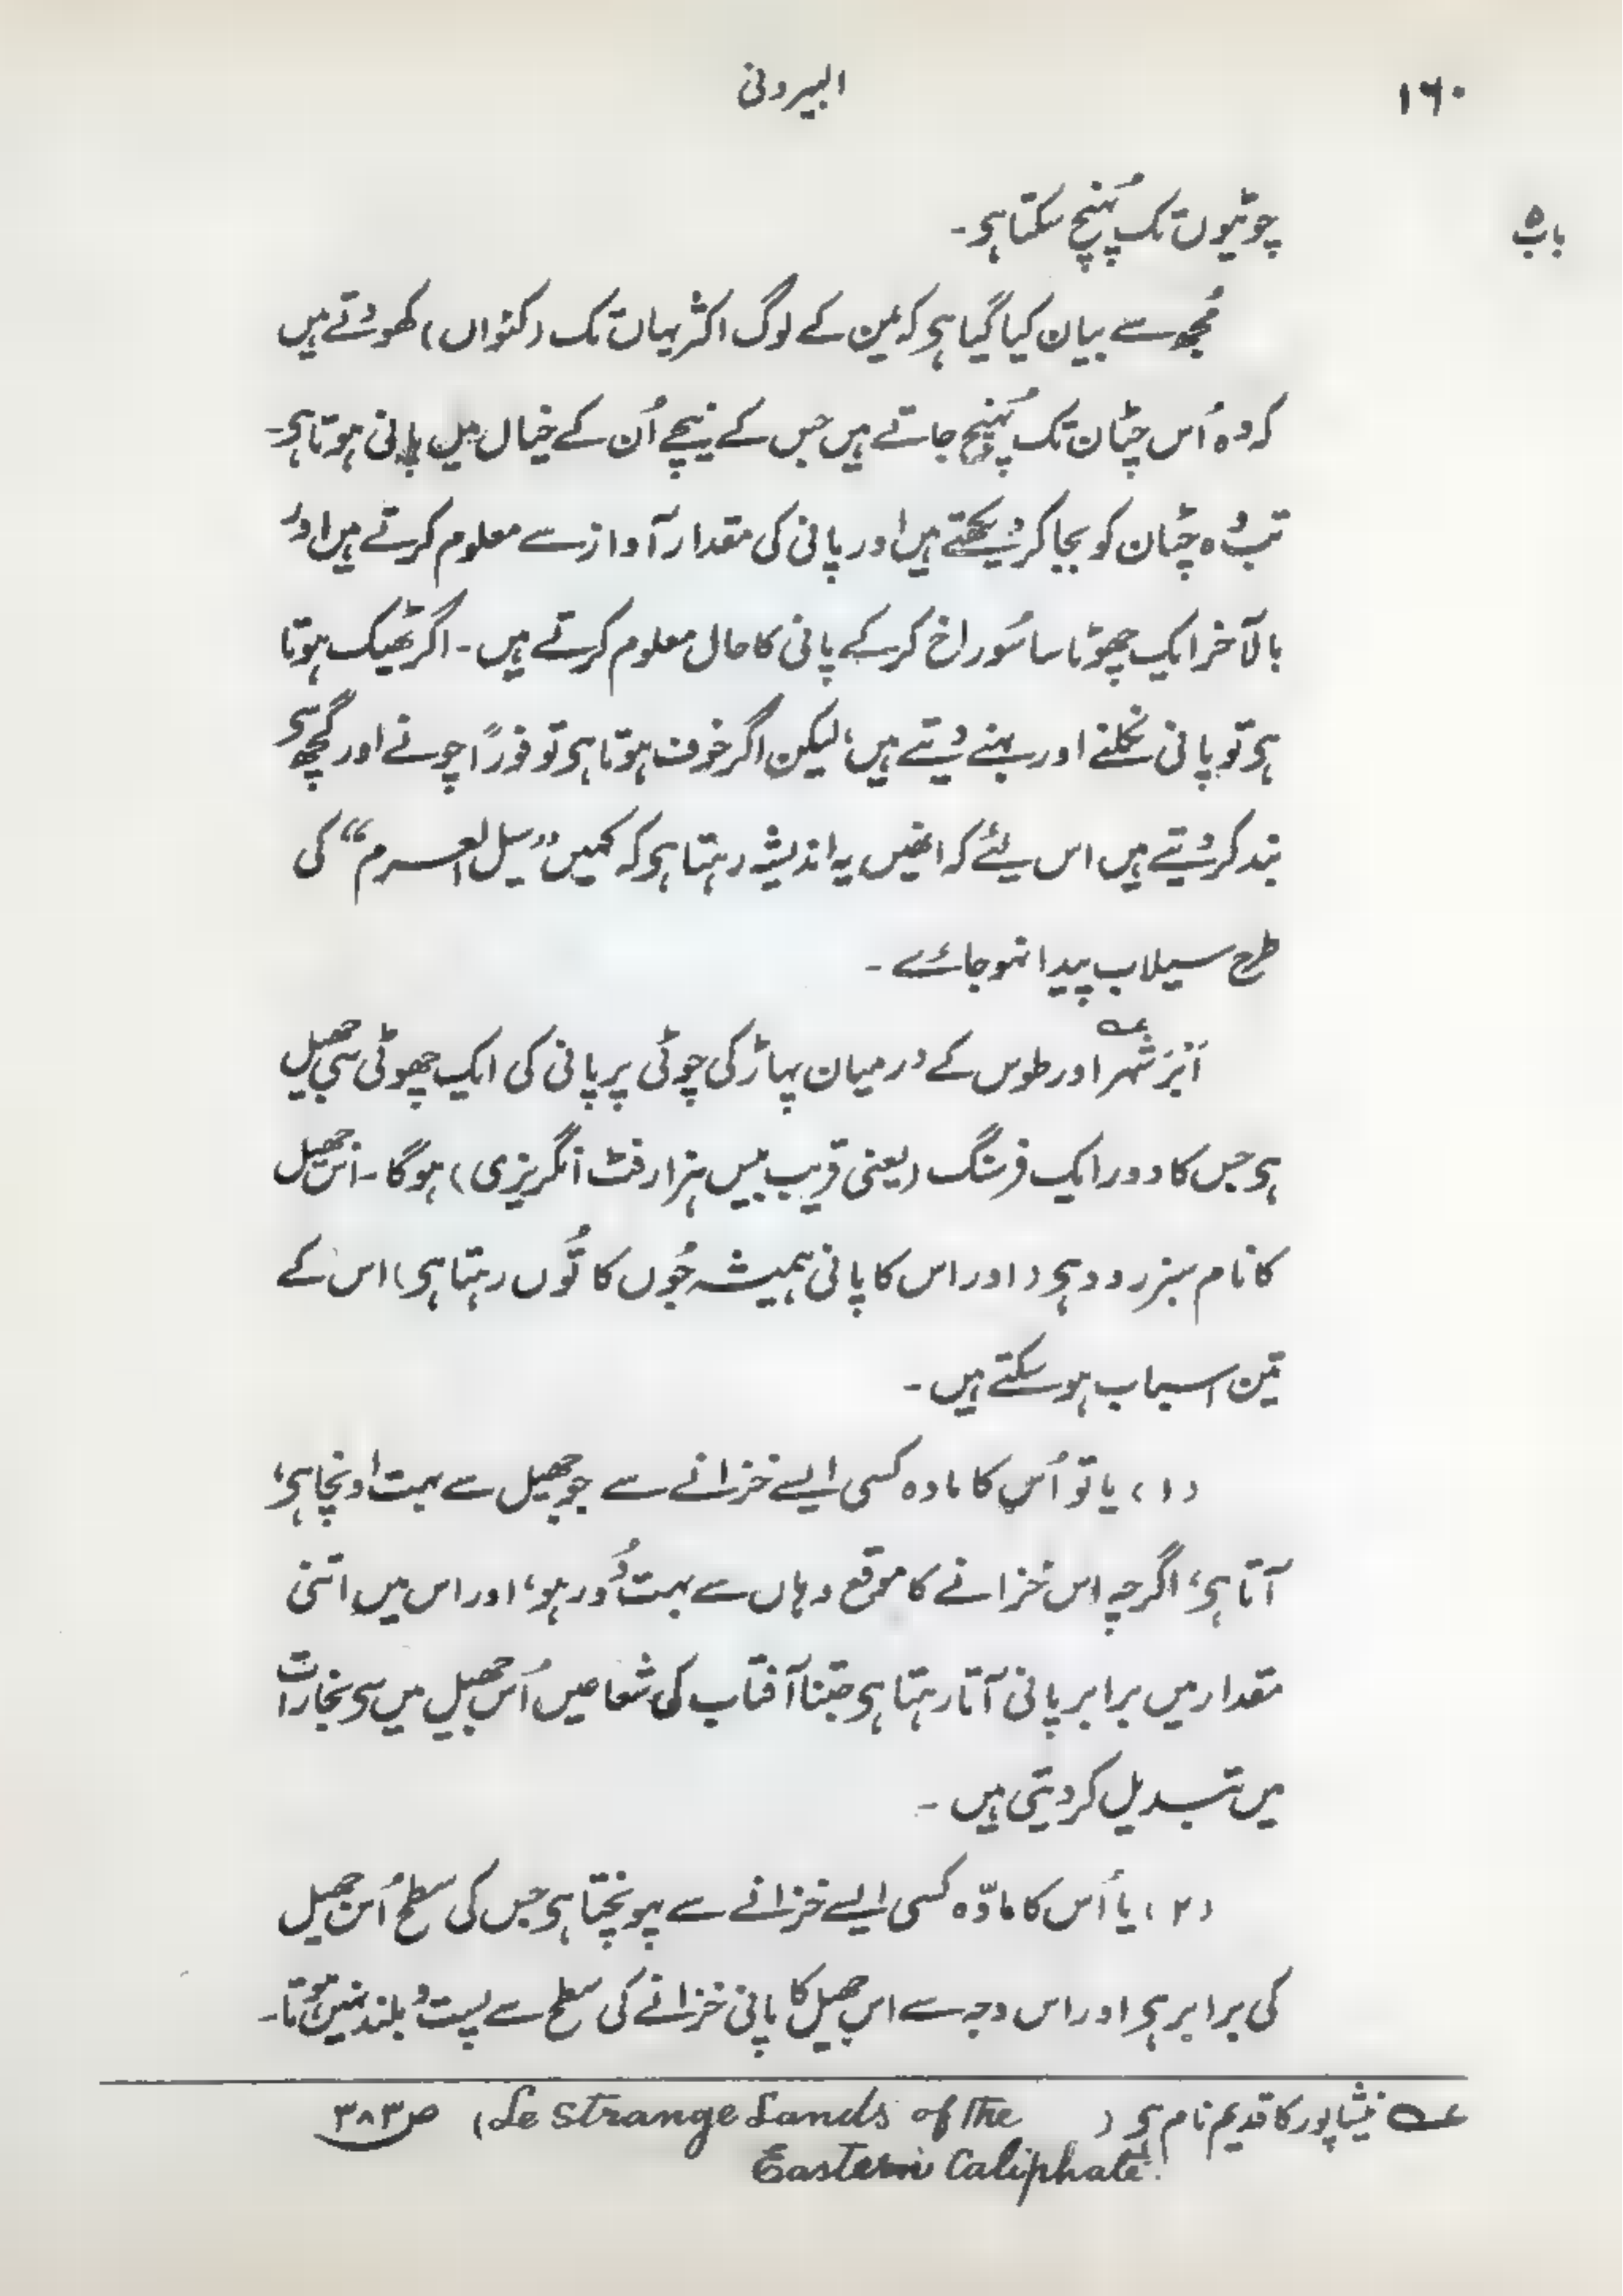 ۱۶۰
البیرونی
باب ۵
چوٹیوں تک پہنچ سکتا ہی۔
مُجھ سے بیان کیا گیا ہی کہ یمن کے لوگ اکثر یہاں تک (کنواں) کھودتے ہیں
کہ وہ اُس چٹان تک پہُنچ جاتے ہیں جس کے نیچے اُن کے خیال میں پانی ہوتا ہی۔
تب وُہ چٹان کو بجا کر دیکھتے ہیں اور پانی کی مقدار آواز سے معلوم کرتے ہیں اور
بالآخر ایک چھوٹا سا سُوراخ کرکے پانی کا حال معلوم کرتے ہیں۔ اگر ٹھیک ہوتا
ہی تو پانی نکلنے اور بہنے دیتے ہیں، لیکن اگر خوف ہوتا ہی تو فوراً چونے اور گچ سی
بند کر دیتے ہیں اس لئے کہ انھیں یہ اندیشہ رہتا ہی کہ کہیں "سیل العرم" کی
طرح سیلاب پیدا نہو جائے۔
اَبْرَ شہر اور طوس کے درمیان پہاڑ کی چوٹی پر پانی کی ایک چھوٹی سی جھیل
ہی جس کا دور ایک فرسنگ (یعنی قریب بیس ہزار فٹ انگریزی) ہوگا۔ اس جھیل
کا نام سبزرود ہی (اور اس کا پانی ہمیشہ جُوں کا تُوں رہتا ہی) اس کے
تین اسباب ہو سکتے ہیں۔
(۱) یا تو اُس کا مادہ کسی ایسے خزانے سے جو جھیل سے بہت اونچا ہی،
آتا ہی، اگرچہ اس خزانے کا موقع وہاں سے بہت دُور ہو، اور اس میں اتنی
مقدار میں برابر پانی آتا رہتا ہی جتنا آفتاب کی شعاعیں اُس جھیل میں سی بخارات
میں تبدیل کر دیتی ہیں۔
(۲) یا اُس کا مادّہ کسی ایسے خزانے سے پہونچتا ہی جس کی سطح اُس جھیل
کی برابر ہی اور اس وجہ سے اس جھیل کا پانی خزانے کی سطح سے پست و بلند نہیں ہوتا۔
عہ نیشاپور کا قدیم نام ہی (Le Strange Lands of the) ص ۳۸۳
Eastern Caliphate.